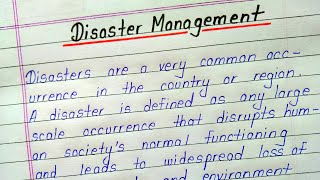 Disaster Management
Disasters are a very common occ-
urrence in the country or region.
A disaster is defined as any large
scale occurrence that disrupts hum-
an society's normal functioning
and leads to widespread loss of
and environment